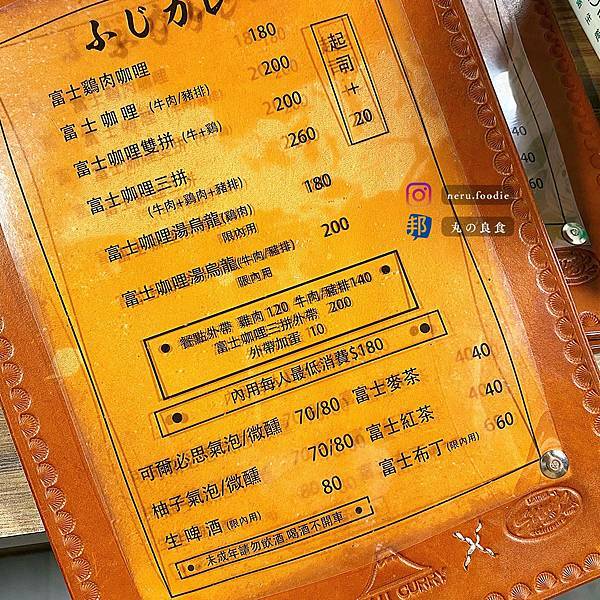 ふじカレ
富士鷄肉咖哩 180
富士咖哩 (牛肉/豬排) 200
富士咖哩雙拼 (牛+鷄) 200
富士咖哩三拼 260
(牛肉+鷄肉+豬排)
富士咖哩湯烏龍(鷄肉) 180
限內用
富士咖哩湯烏龍(牛肉/豬排) 200
限內用
起司++20
餐點外帶 雞肉 120 牛肉/豬排140
富士咖哩三拼外帶 200
外帶加蛋 10
內用每人最低消費$180
可爾必思氣泡/微醺 70/80
柚子氣泡/微醺 70/80
生啤酒 (限內用) 80
富士麥茶 40
富士紅茶 40
富士布丁(限內用) 60
未成年請勿飲酒 喝酒不開車
CURRY
40
60
neru.foodie
邦 丸の良食